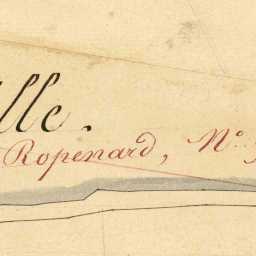 lle.
Ropenard, N.o